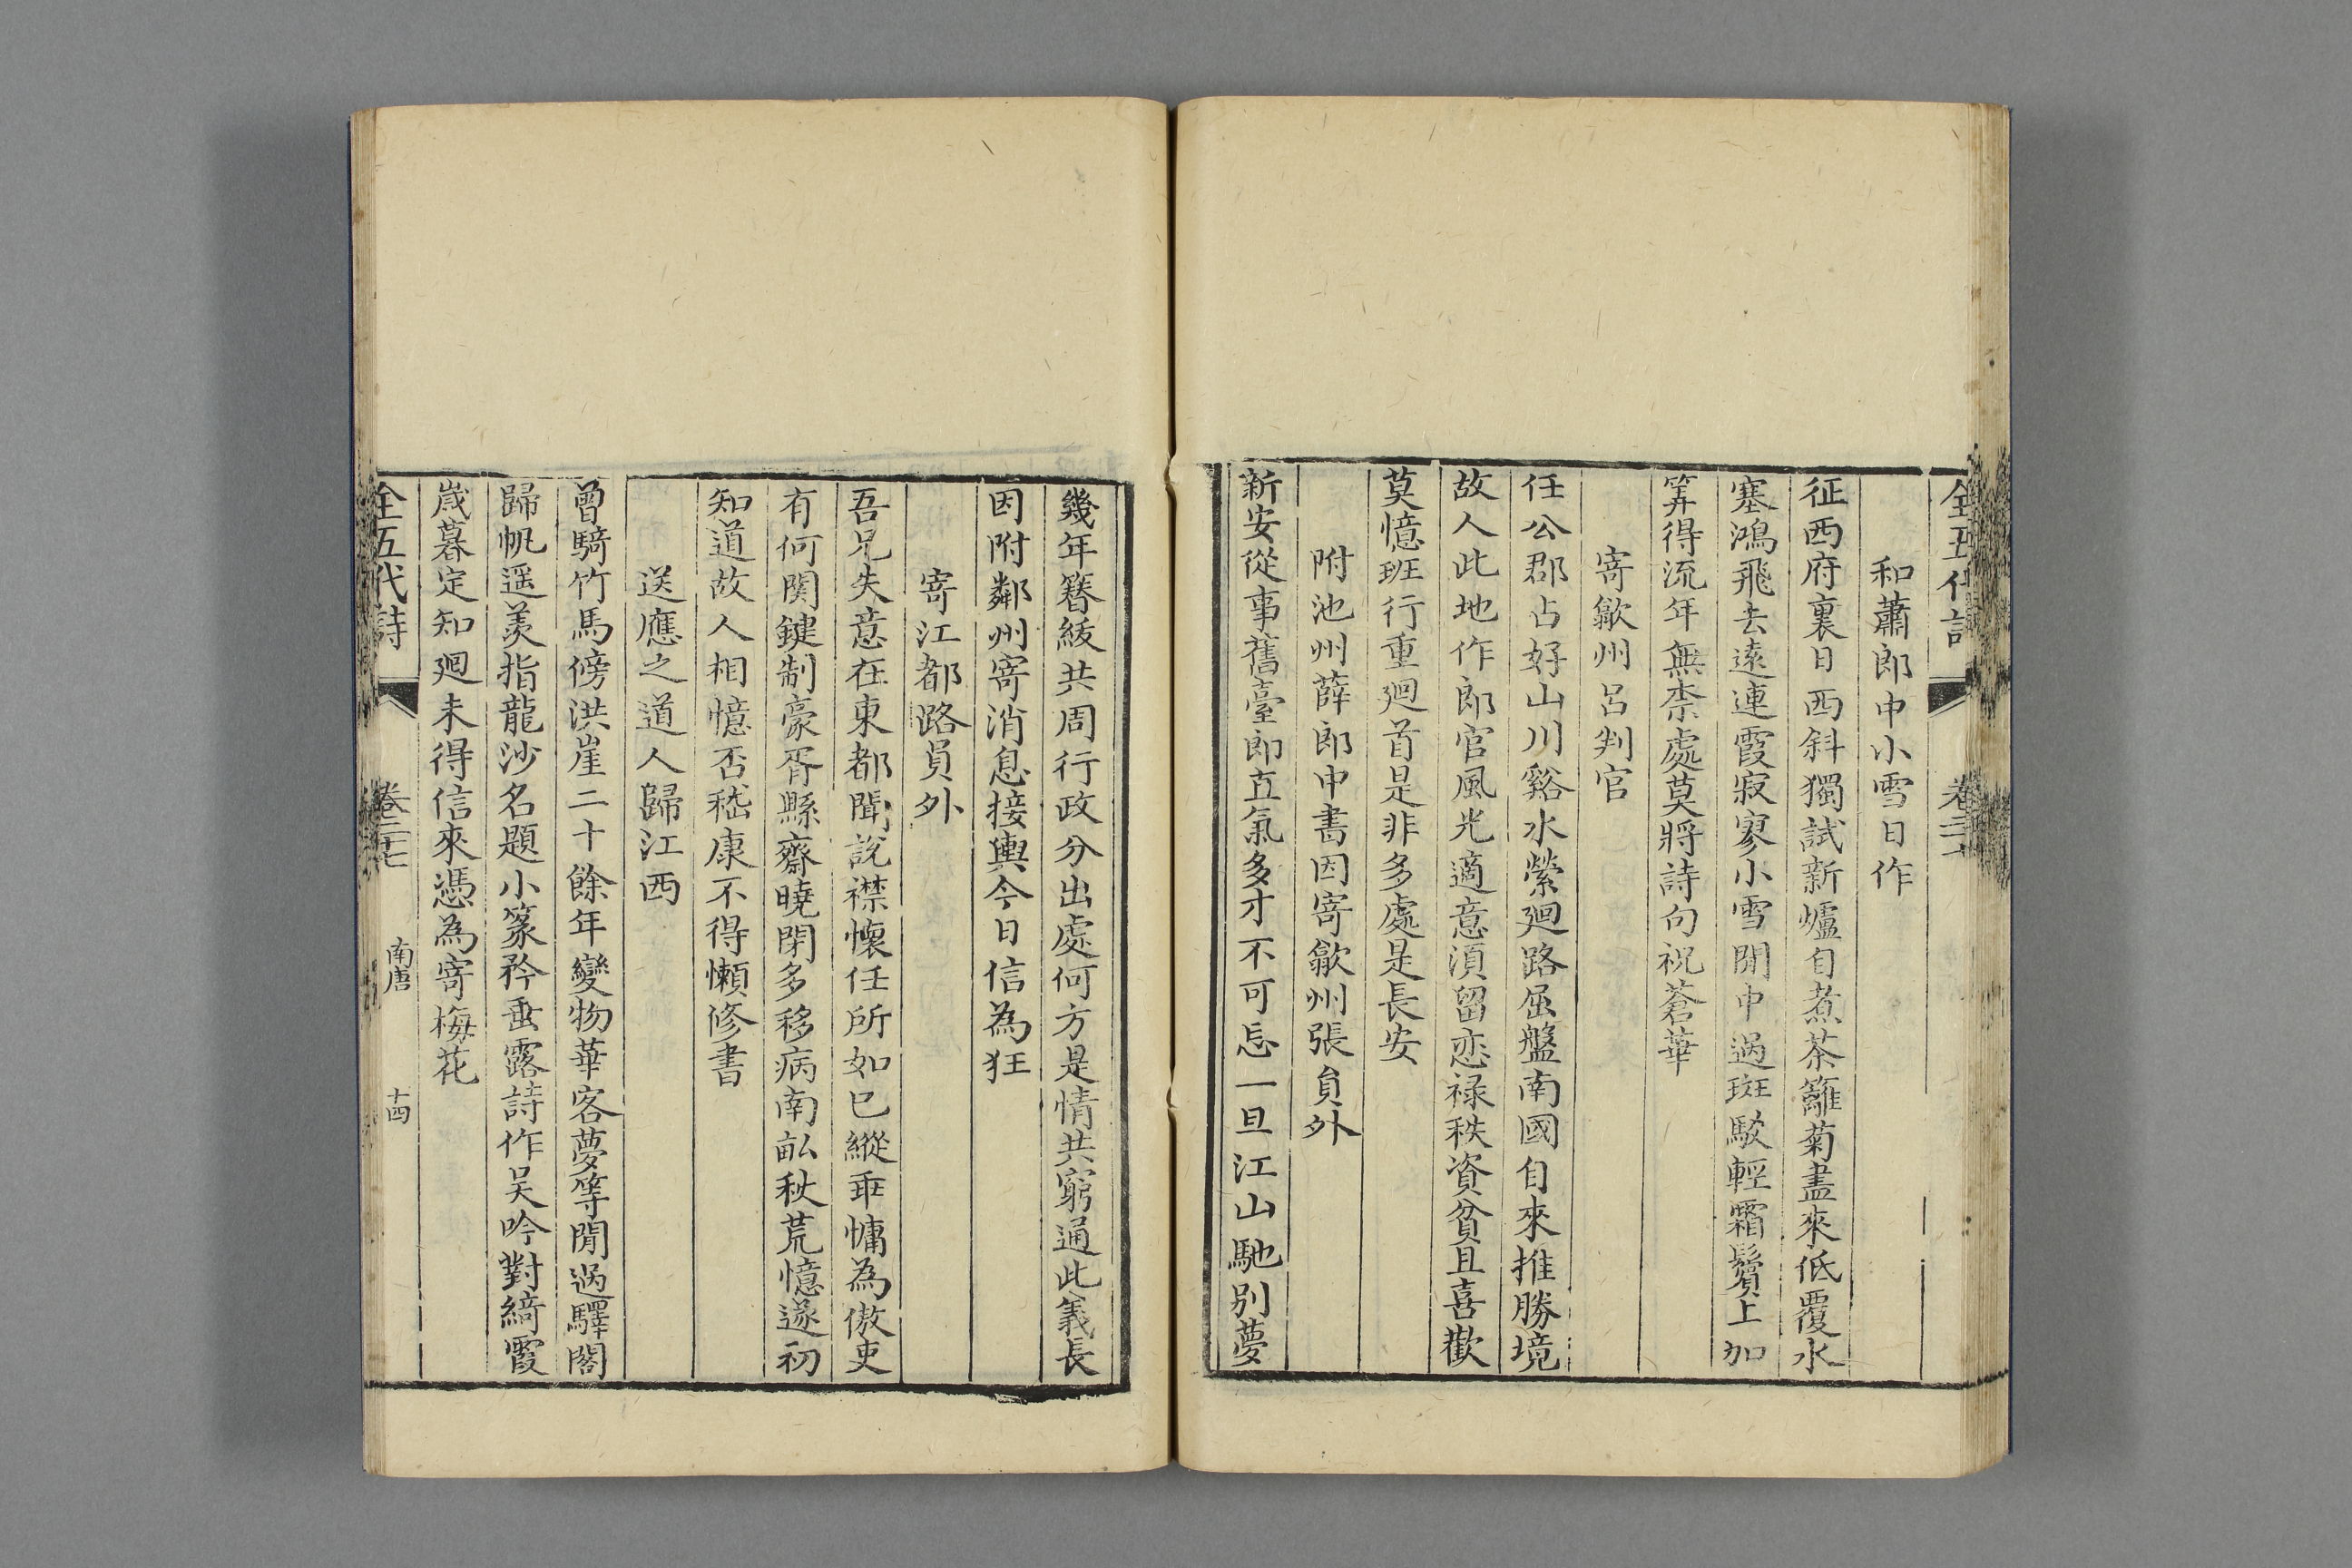 全五代詩 卷二十
和蕭郎中小雪日作
征西府裏日西斜獨試新爐自煮茶籬菊盡來低覆水
塞鴻飛去遠連霞寂寥小雪閒中過斑駁輕霜鬢上加
筭得流年無柰處莫將詩句祝蒼華
寄歙州呂判官
任公郡占好山川谿水縈廻路屈盤南國自來推勝境
故人此地作郎官風光適意湏留恋禄秩資貧且喜歡
莫憶班行重廻首是非多處是長安
附池州薛郎中書因寄歙州張員外
新安從事舊臺郎直氣多才不可忘一旦江山馳別夢
幾年簪紱共周行政分出處何方是情共窮通此義長
因附鄰州寄消息接輿今日信為狂
寄江都路員外
吾兄失意在東都聞說襟懷任所如已縱乖慵為傲吏
有何関鍵制豪胥縣齋曉閉多移病南畒秋荒憶遂初
知道故人相憶否嵇康不得懶修書
送應之道人歸江西
曾騎竹馬傍洪崖二十餘年變物華客夢等閒過驛閣
歸帆遥羨指龍沙名題小篆矜垂露詩作吴吟對綺霞
歲暮定知廻未得信來憑為寄梅花
全五代詩 卷二十七 南唐 十四